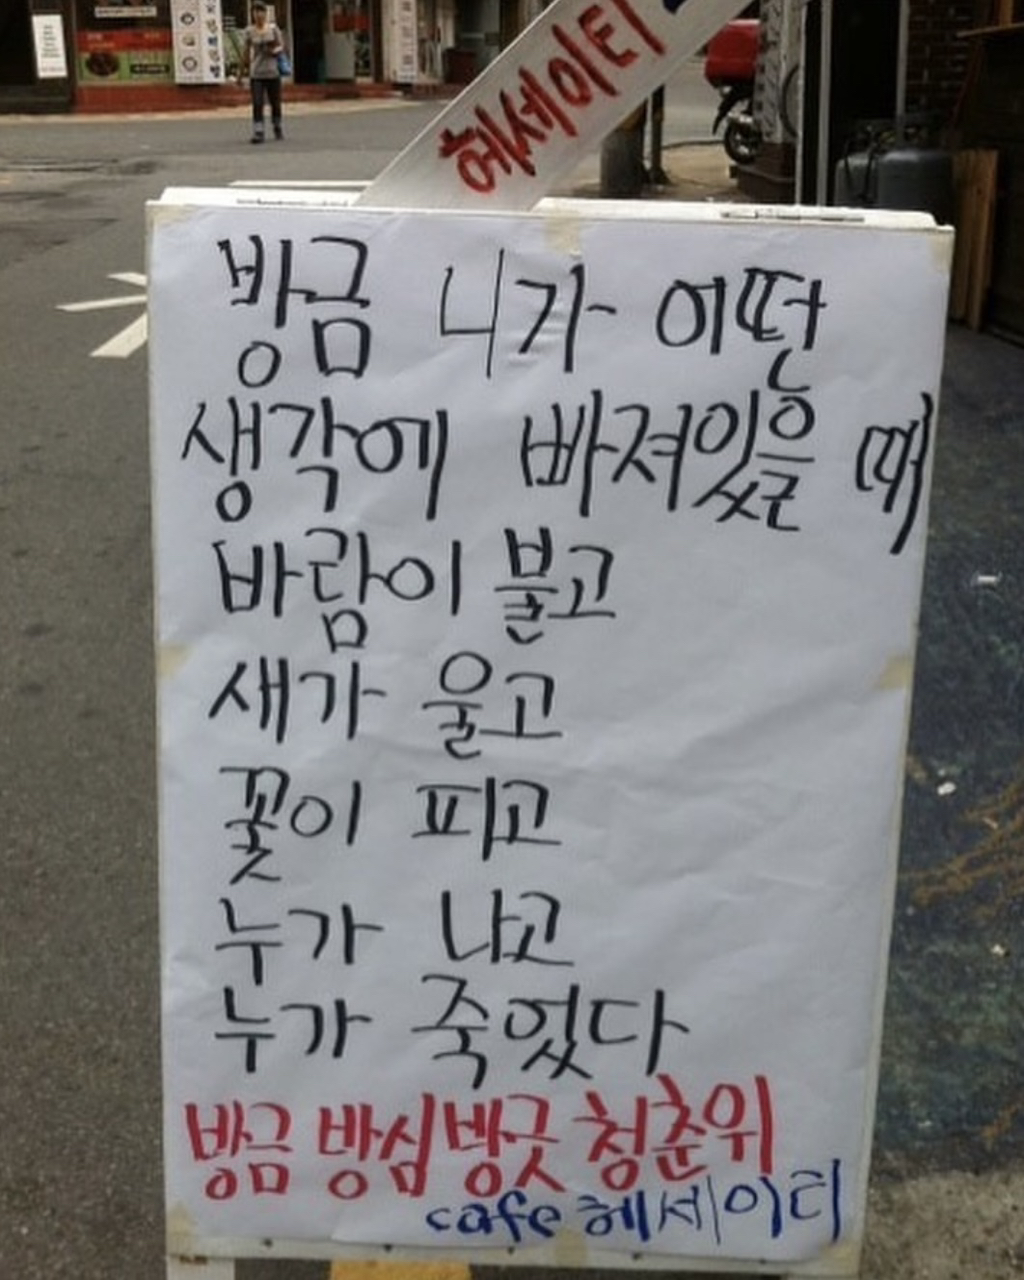 헤세이티
방금 니가 어떤
생각에 빠져있을 때
바람이 불고
새가 울고
꽃이 피고
누가 나고
누가 죽었다
방금 방심 방긋 청춘위
cafe 헤세이티